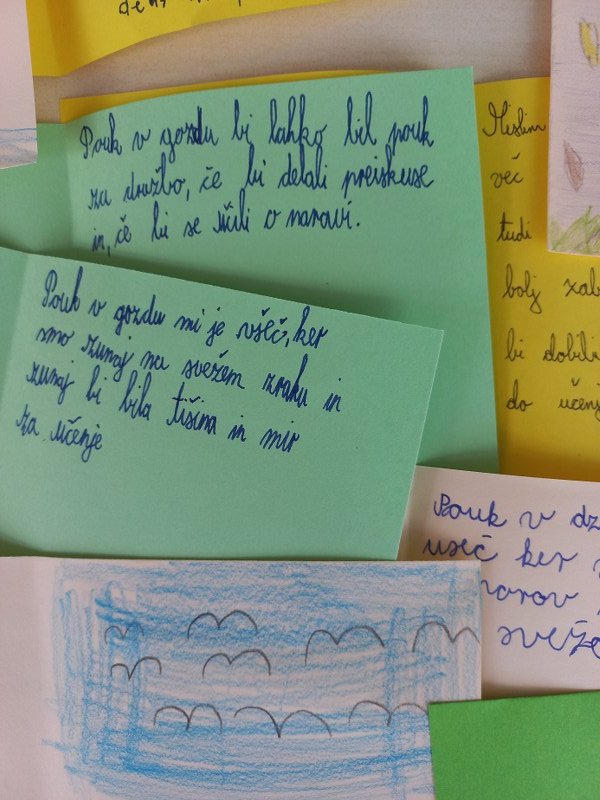 Pouk v gozdu bi lahko bil pouk
za družbo, če bi delali preiskuse
in, če bi se učili o naravi.
Pouk v gozdu mi je všeč, ker
smo zunaj na svežem zraku in
zunaj bi bila tišina in mir
za učenje
Mislim
več
tudi
bolj zab
bi dobili
do učenj
Pouk v
useč ker
narav
sveže